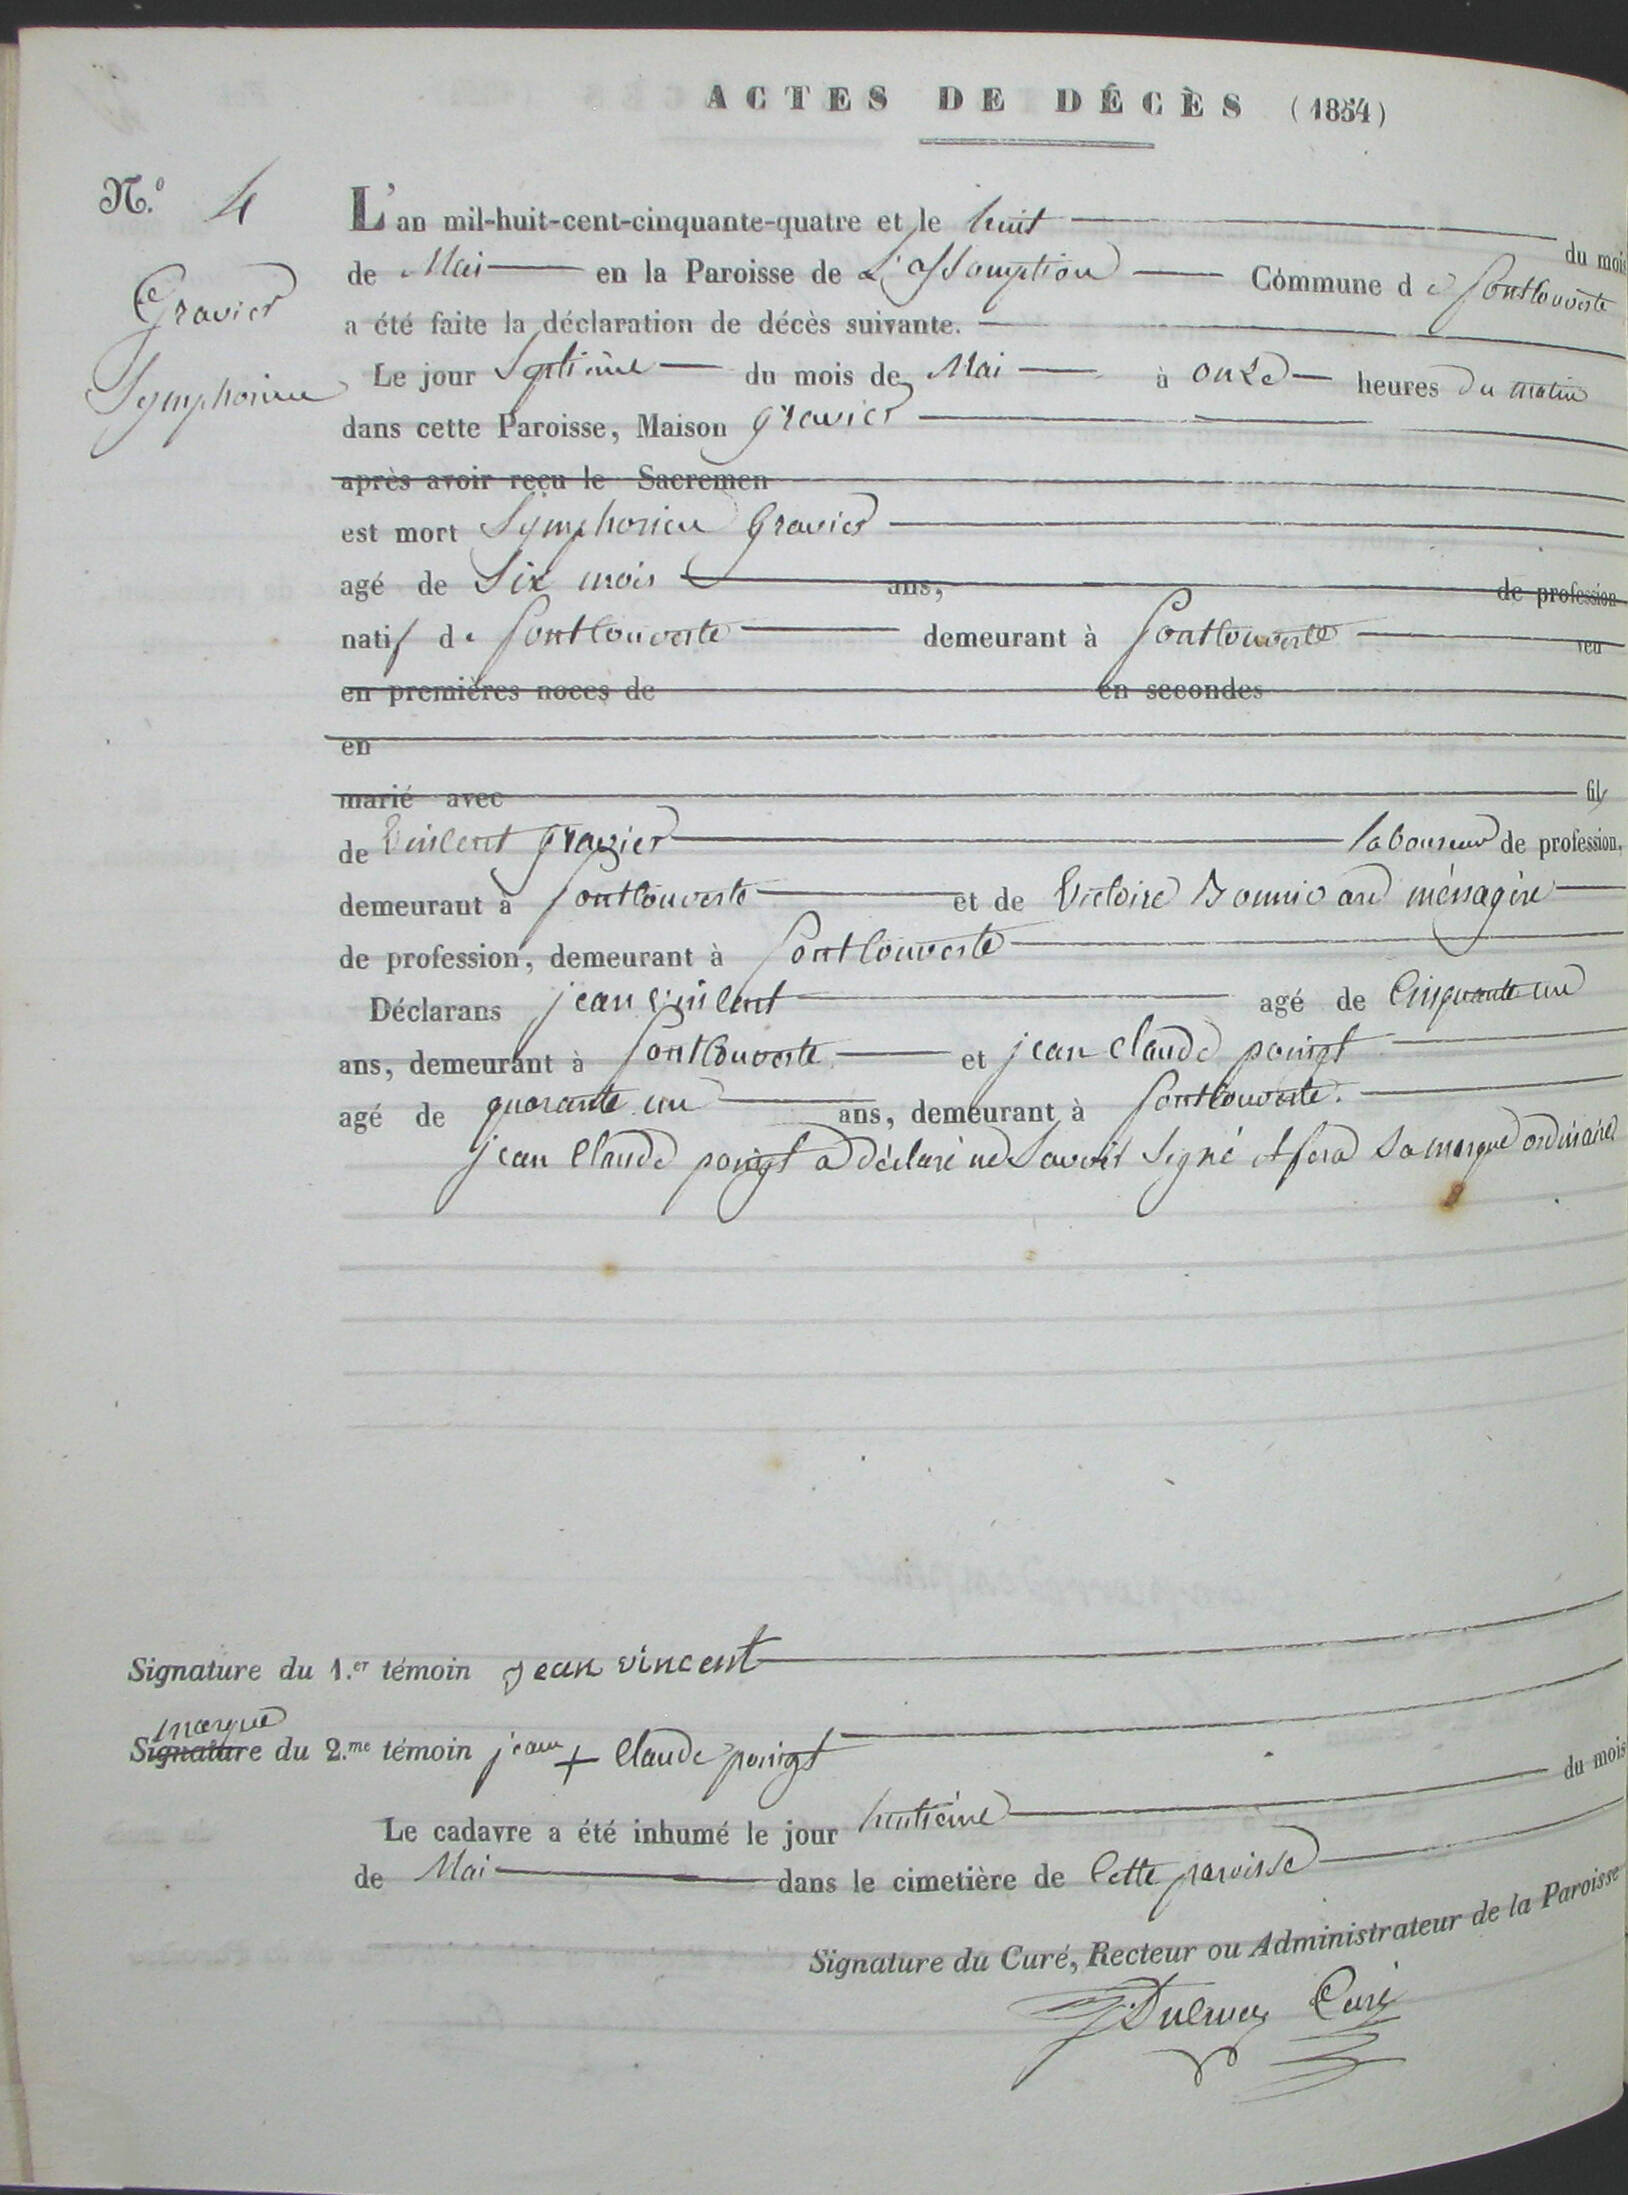 ACTES DE DÉCÈS (1854)
N.º 4
L'an mil-huit-cent-cinquante-quatre et le huit du mois
de Mai en la Paroisse de L'assomption Commune de Fontcouverte
Gravier
a été faite la déclaration de décès suivante.
Symphorien
Le jour Septième du mois de Mai à onze heures du matin
dans cette Paroisse, Maison gravier
après avoir reçu le Sacremen
est mort Symphorien Gravier
agé de Six mois ans, de profession
natif de Fontcouverte demeurant à Fontcouverte veu
en premières noces de en secondes
en
marié avec fils
de Vincent gravier laboureur de profession,
demeurant à Fontcouverte et de Victoire Bonnivard ménagère
de profession, demeurant à Fontcouverte
Déclarans jean vincent agé de Cinquante un
ans, demeurant à Fontcouverte et jean Claude
agé de quarante un ans, demeurant à Fontcouverte.
jean Claude a déclaré ne Savoir Signé et fera Sa marque ordinaire
Signature du 1.er témoin jean vincent
marque
Signature du 2.me témoin jean + Claude
Le cadavre a été inhumé le jour huitième du mois
de Mai dans le cimetière de Cette paroisse
Signature du Curé, Recteur ou Administrateur de la Paroisse
Curé